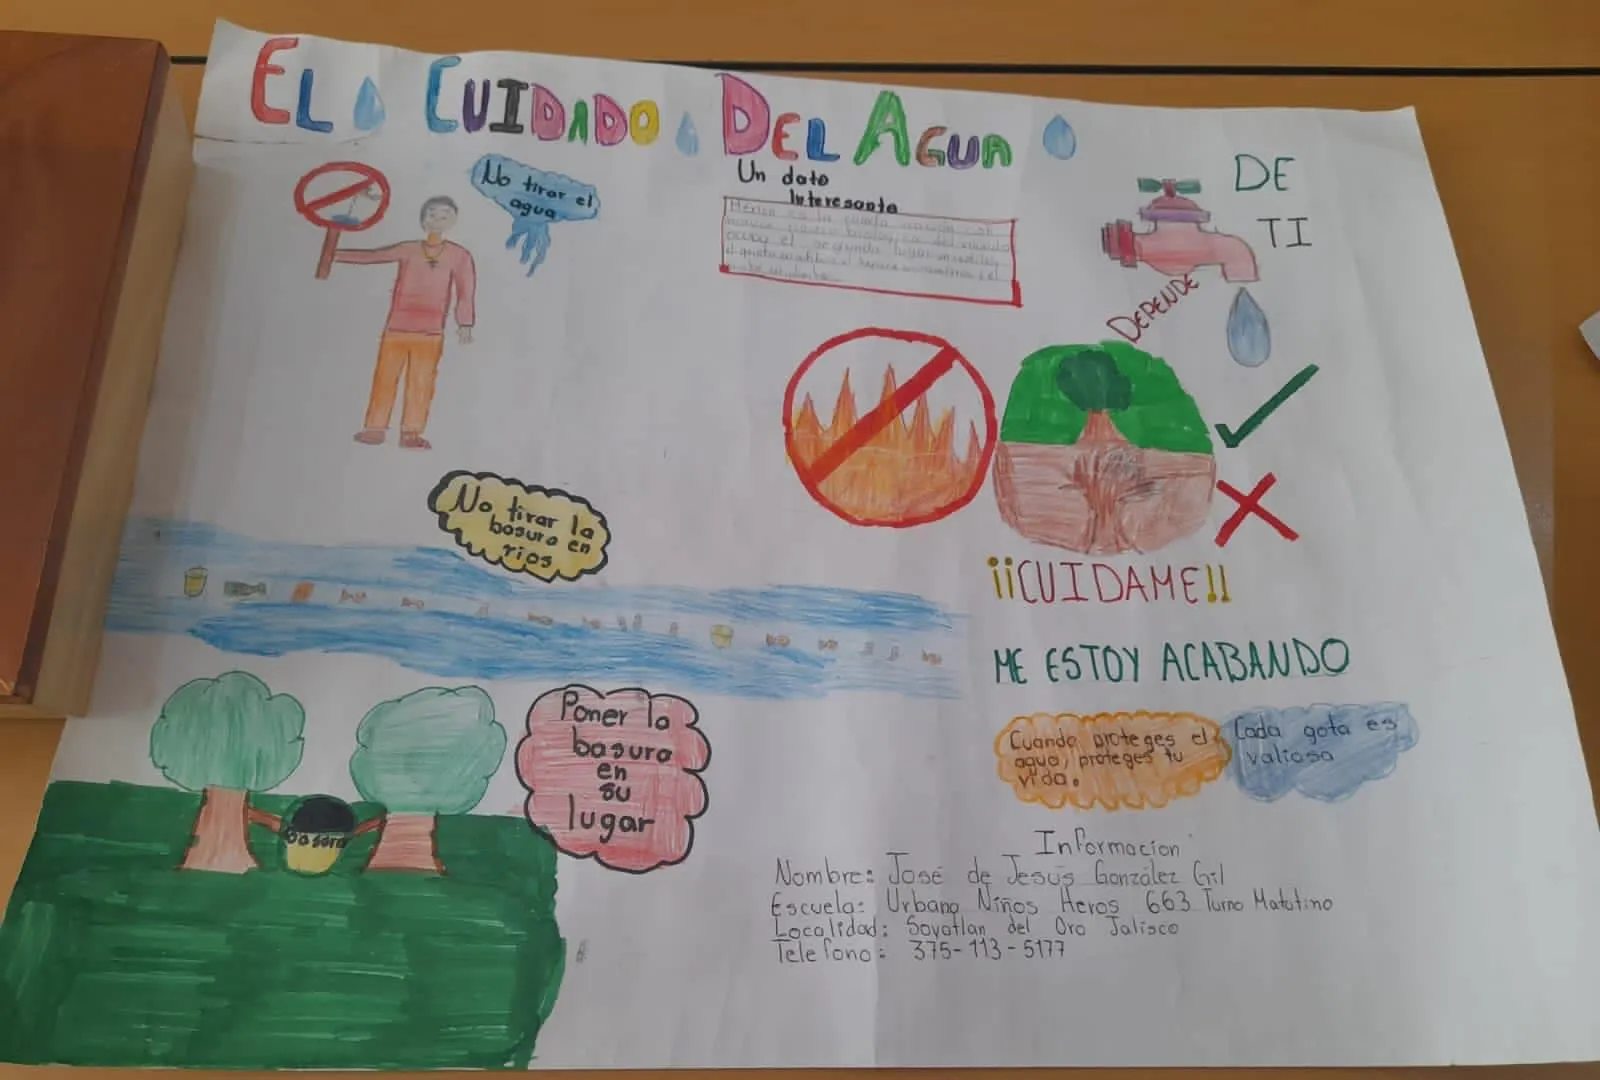 EL CUIDADO DEL AGUA
No tirar el
agua
Un dato
Interesante
México es la
del mundo
ocupa el segundo lugar
DE
TI
DEPENDE
No tirar la
basura en
rios
¡¡CUIDAME!!
ME ESTOY ACABANDO
Poner la
basura
en
su
lugar
basura
Cuando proteges el
agua, proteges tu
vida.
Cada gota es
valiosa
Informacion
Nombre: José de Jesús González Gil
Escuela: Urbana Niños Heros 663 Turno Matutino
Localidad: Soyatlan del Oro Jalisco
Telefono: 375-113-5177